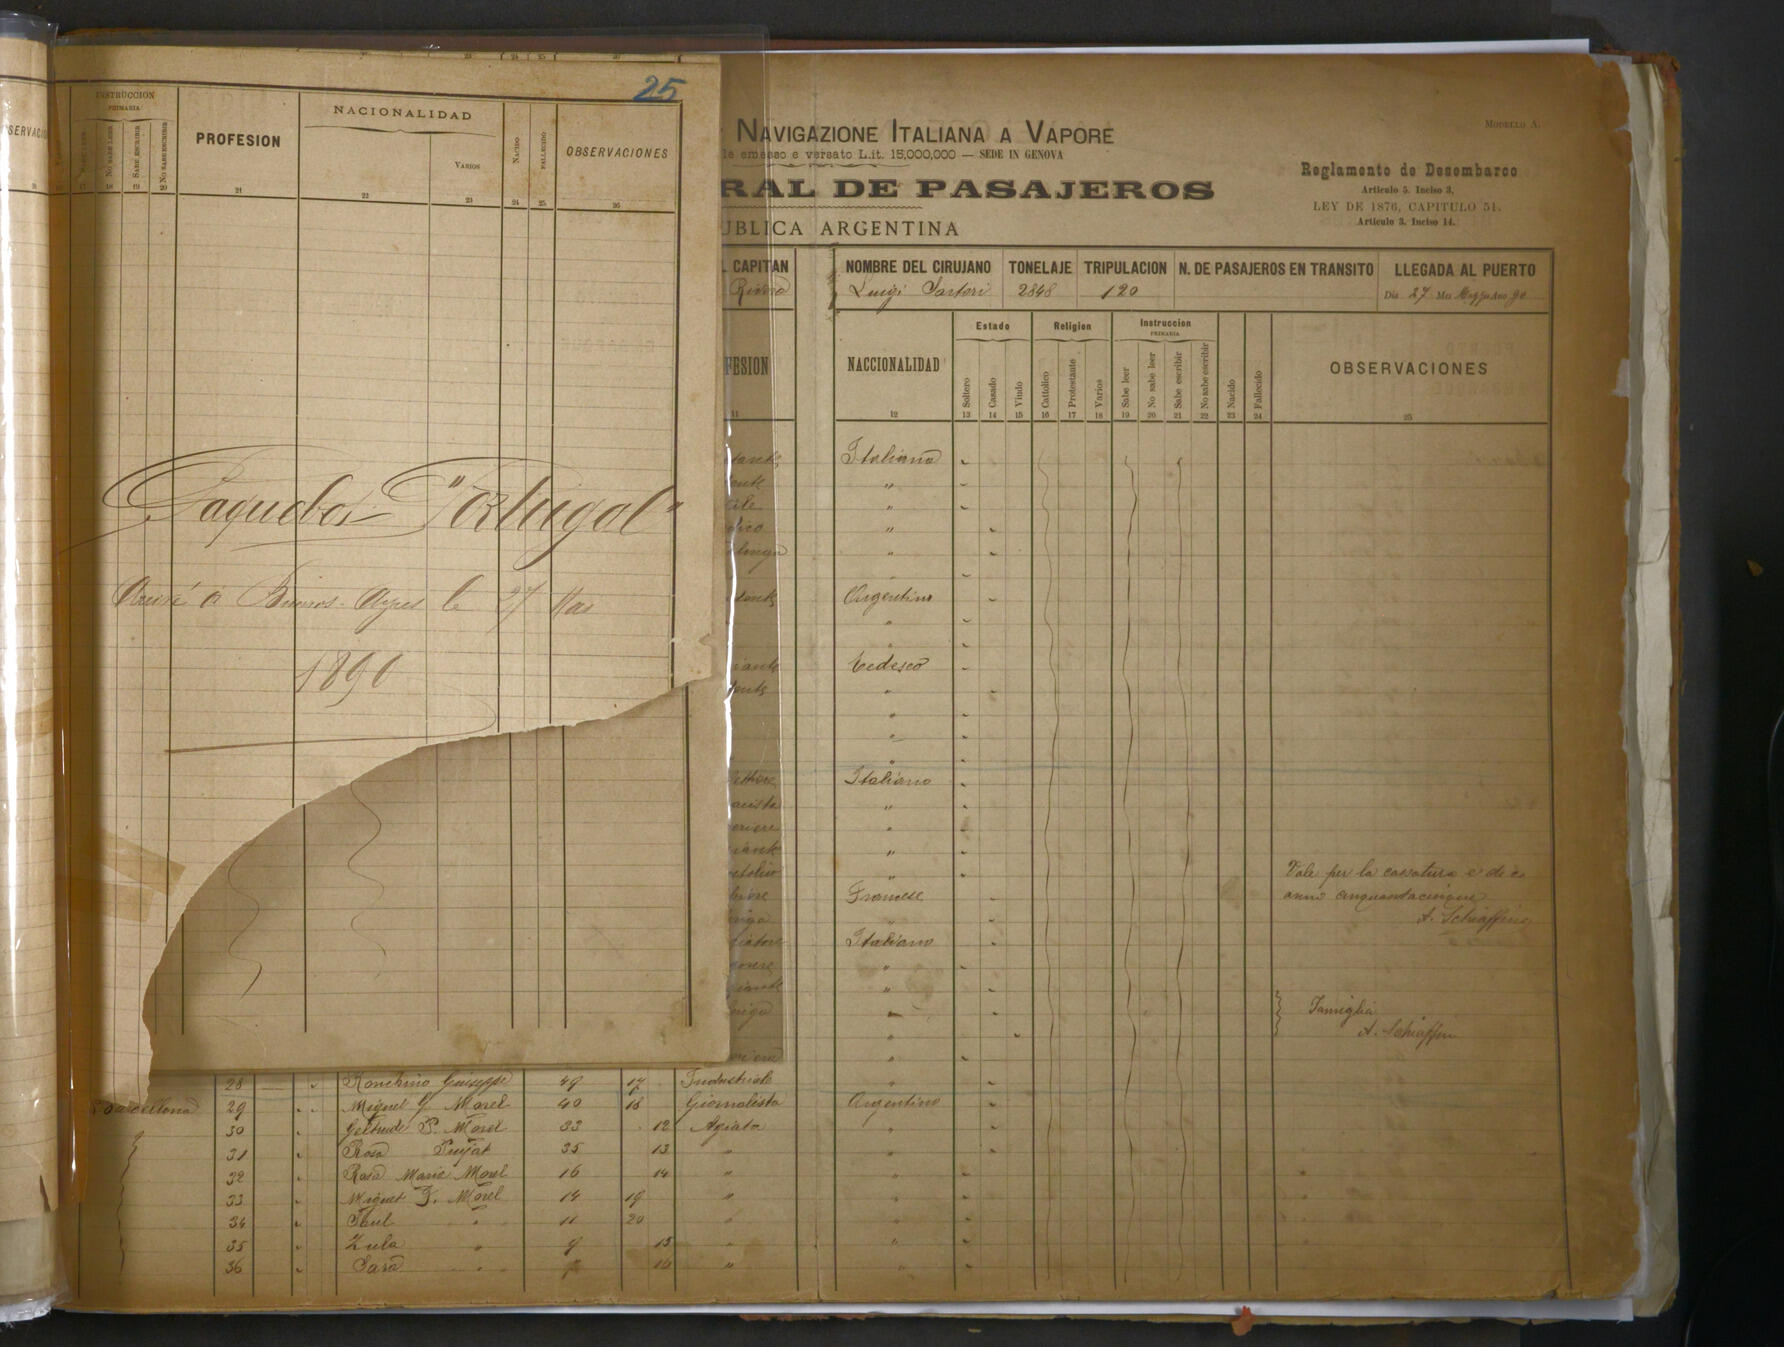 25
SERVACIO
INSTRUCCION
PRIMARIA
No SABE LEER
SABE ESCRIBIR
No SABE ESCRIBIR
PROFESION
NACIONALIDAD
VARIOS
NACIDO
FALLECIDO
OBSERVACIONES
17 18 19 20 21 22 23 24 25 26
Paquebot "Portugal"
Arrivé à Buenos-Ayres le 27 Mai
1890
NAVIGAZIONE ITALIANA A VAPORE
MODELLO A.
le emesso e versato L.it. 15,000,000 — SEDE IN GENOVA
RAL DE PASAJEROS
UBLICA ARGENTINA
Reglamento de Desembarco
Artículo 5. Inciso 3.
LEY DE 1876, CAPITULO 51.
Artículo 3. Inciso 14.
L CAPITAN
NOMBRE DEL CIRUJANO
TONELAJE
TRIPULACION
N. DE PASAJEROS EN TRANSITO
LLEGADA AL PUERTO
Luigi Sartori
2848
120
Dia 27 Mes Ano 90
FESION
NACCIONALIDAD
Estado
Religion
Instruccion
PRIMARIA
OBSERVACIONES
Soltero
Casado
Viudo
Cattolico
Protestante
Varios
Sabe leer
No sabe leer
Sabe escribir
No sabe escribir
Nacido
Fallecido
11 12 13 14 15 16 17 18 19 20 21 22 23 24 25
Italiano
"
"
"
"
Argentino
"
"
Tedesco
"
"
"
"
Italiano
"
"
"
"
Francese
"
Italiano
"
"
"
"
"
Vale per la cassatura e dico
anni cinquantacinque
A. Schiaffino
Famiglia
A. Schiaffino
28 Ronchino Giuseppe 49 17 Industriale "
Barcellona 29 " " Miguel G Morel 40 18 Giornalista Argentino
30 " Geltrude P. Morel 33 12 Agiata "
31 " Rosa Pujat 35 13 " "
32 " Rosa Maria Morel 16 14 " "
33 " Miguel F. Morel 14 19 " "
34 " Paul " 11 20 " "
35 " Zula " 9 15 " "
36 " Sara " 16 " "